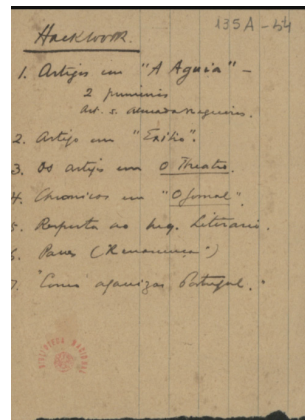 135A-54
Hackwork.
1. Artigos em "A Aguia" –
2 primeiros
Art. s. Almada Negreiros.
2. Artigo em "Exilio".
3. Os artigos em O Theatro.
4. Chronicas em "O Jornal".
5. Resposta ao Inq. Literario.
6. Paues ("Renascença")
7. "Como organizar Portugal."
BIBLIOTECA NACIONAL